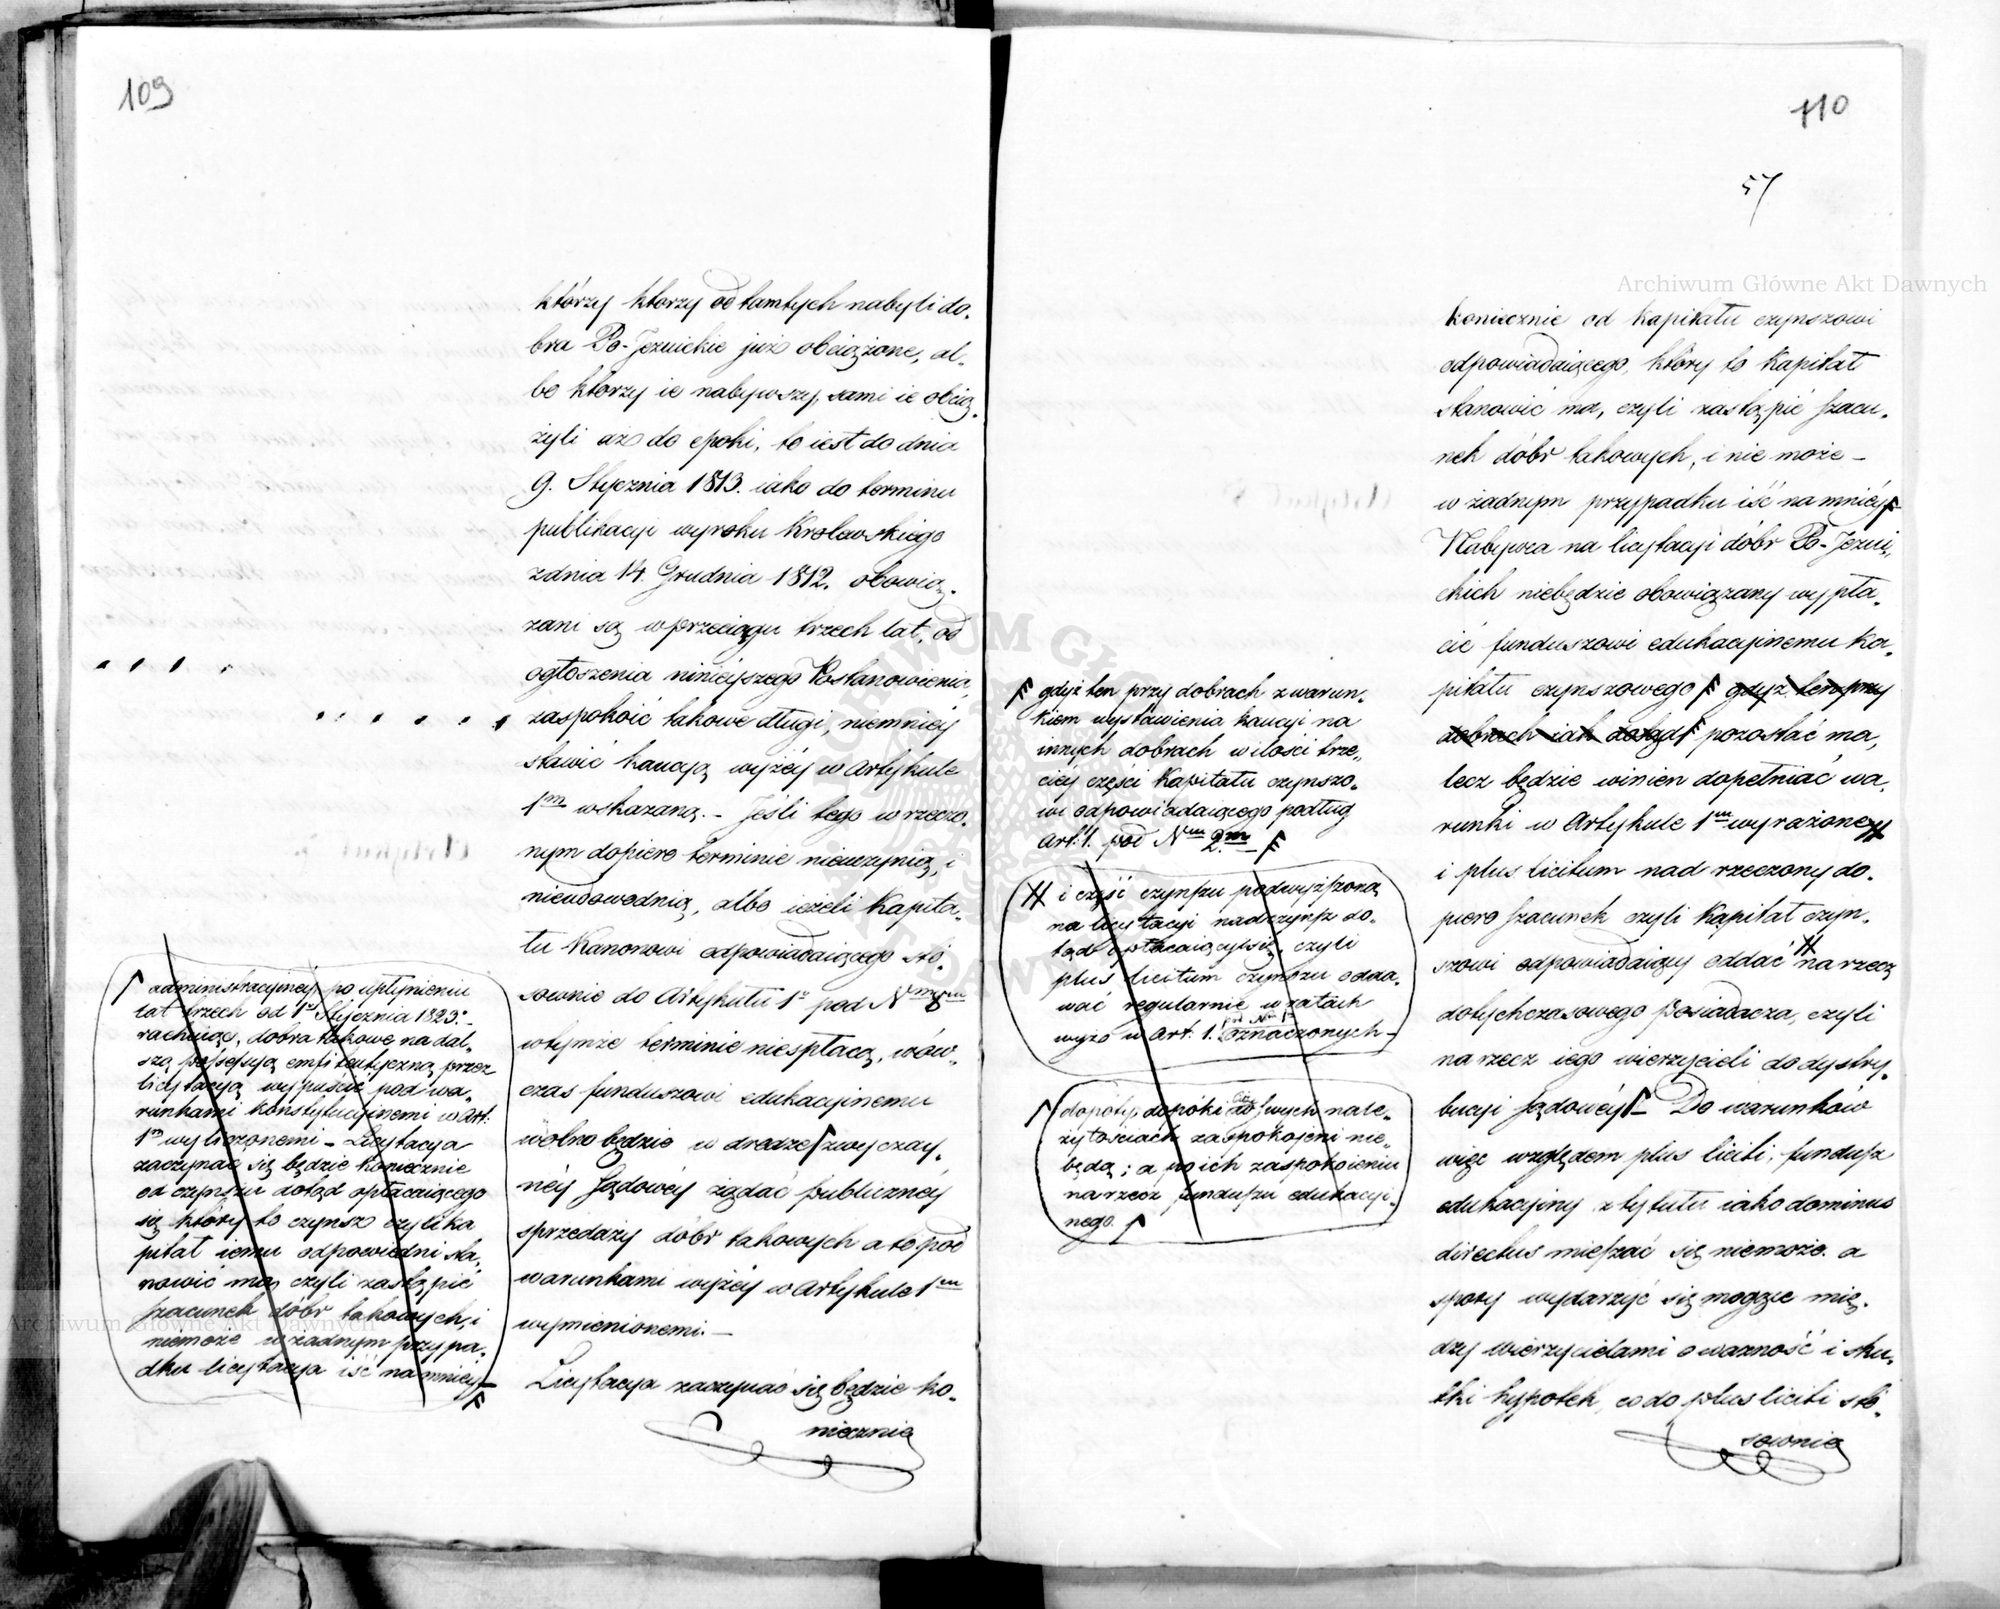 109
którzy ktorzy od tamtych nabyli do-
bra Po-Jezuickie już obciążone, al-
bo ktorzy ie nabywszy, sami ie obcią-
żyli aż do epoki, to iest do dnia
9. Stycznia 1813. iako do terminu
publikacyi wyroku Krolewskiego
zdnia 14. Grudnia 1812. obowią-
zani są w przeciągu trzech lat, od
ogłoszenia ninieyszego Postanowienia,
zaspokoić takowe długi, niemniéy
stawić kaucyą wyżéy w Artykule
1m wskazaną. - Jeśli tego w rzeczo-
nym dopiero terminie nieuczynią, i
nieudowodnią, albo ieżeli Kapita-
łu Kanonowi odpowiadaiącego sto-
sownie do Artykułu 1o pod Nrem
wtymże terminie niespłacą, wów-
czas funduszowi edukacyinemu
wolno będzie w drodze zwyczay-
néy Sądowéy żądać publicznéy
sprzedaży dóbr takowych a to pod
warunkami wyżéy w Artykule 1m
wymienionemi. -
Licytacya zaczynać się będzie ko-
niecznie
administracyinéy po upłynieniu
lat trzech od 1o Stycznia 1823.
rachuiąc, dobra takowe na dal-
szą possessyą emfiteutyczną przez
licytacyą wypuścić pod wa-
runkami konstytucyinemi w Art:
1m wyliczonemi - Licytacya
zaczynać się będzie koniecznie
od czynszu dotąd opłacaiącego
się który to czynsz czyli ka
pitał iemu odpowiedni sta-
nowić ma, czyli zastąpić
szacunek dóbr takowych, i
niemoże w żadnym przypa-
dku licytacya iść na mniéy
110
57
koniecznie od Kapitału czynszowi
odpowiadaiącego, który to Kapitał
stanowić ma, czyli zastąpić szacu-
nek dóbr takowych, i nie może -
w żadnym przypadku iść na mniéy
Nabywca na licytacyi dóbr Po-Jezui-
ckich niebędzie obowiązany wypła-
cić funduszowi edukacyinemu Ka-
pitału czynszowego gdyż ten przy
dobrach iak dotąd pozostać ma,
lecz będzie winien dopełniać wa-
runki w Artykule 1m wyrażone
i plus licitum nad rzeczony do-
piero szacunek czyli Kapitał czyn-
szowi odpowiadaiący oddać na rzecz
dotychczasowego Posiadacza, czyli
na rzecz iego wierzycieli do dystry-
bucyi Sądowéy - Do warunków
więc względem plus liciti, fundusz
edukacyiny z tytułu iako dominus
directus mieszać się niemoże. a
spory wydarzyć się mogące mię-
dzy wierzycielami o ważność i sku-
tki hypotek, co do plus liciti sto-
sownie
gdyż ten przy dobrach z warun-
kiem wystawienia kaucyi na
innych dobrach w ilości trze-
ciéy części Kapitału czynszo-
wi odpowiadaiącego podług
Art: 1. pod Nrm 2m
i część czynszu podwyższoną
na licytacyi nad czynsz do-
tąd opłacaiący się, czyli
plus licitum czynszu odda-
wać regularnie w ratach
pod Nm 1
wyżo w Art: 1. oznaczonych -
dopóty, dopóki Ciż o swych nale-
żytościach zaspokojeni nie-
będą; a po ich zaspokoieniu
na rzecz funduszu edukacyi-
nego.
Archiwum Główne Akt Dawnych
Archiwum Główne Akt Dawnych